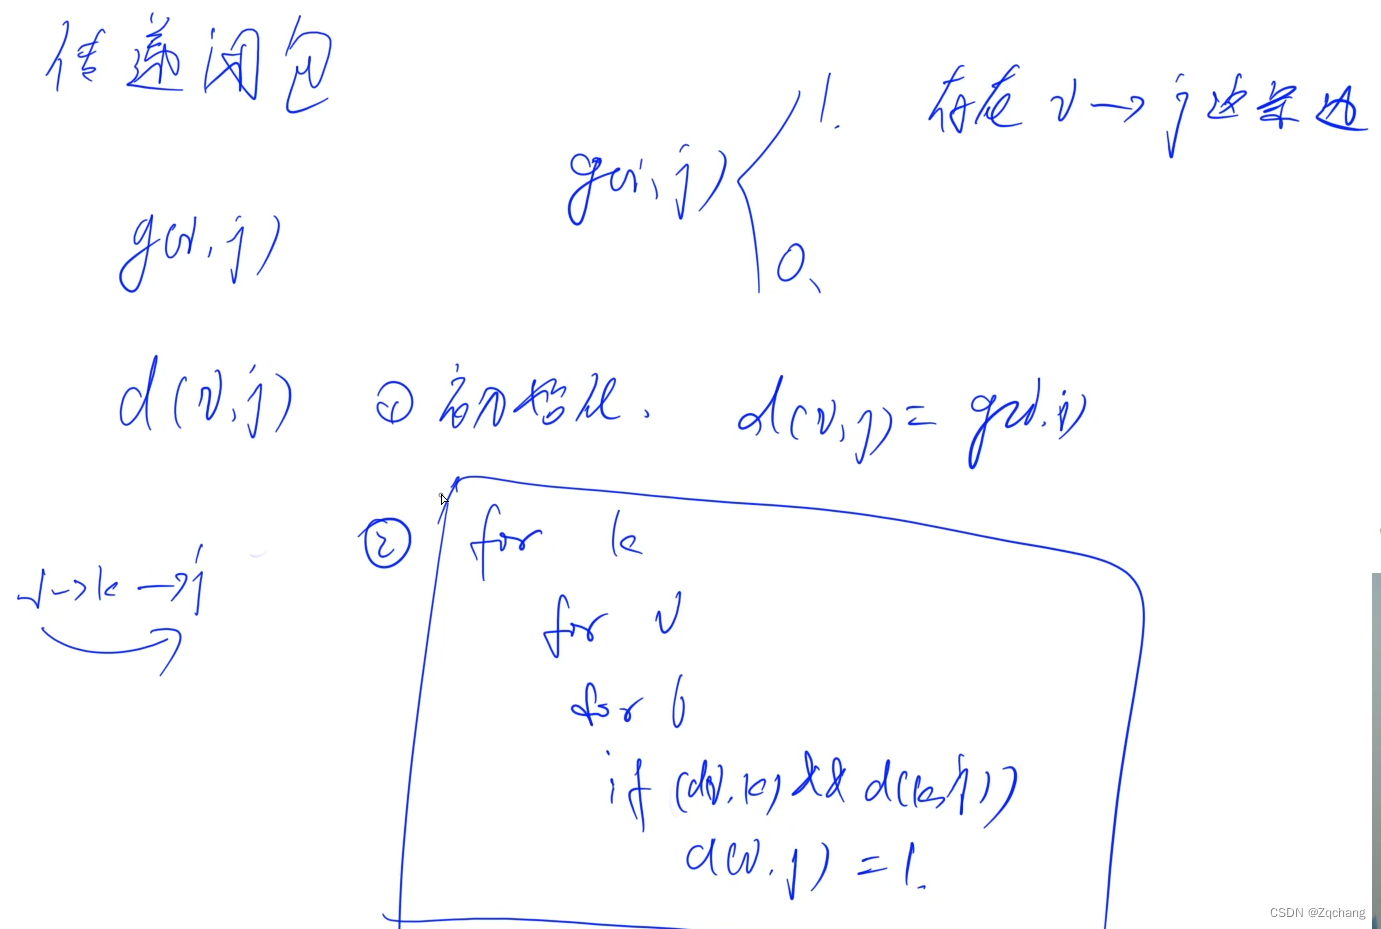 传递闭包
g(i,j) 1. 存在 i→j 这条边
0、
g(i,j)
d(i,j) ① 初始化. d(i,j)= g(i,j)
② for k
i→k→j
for i
for j
if (d(i,k) && d(k,j))
d(i,j) = 1.
CSDN @Zqchang